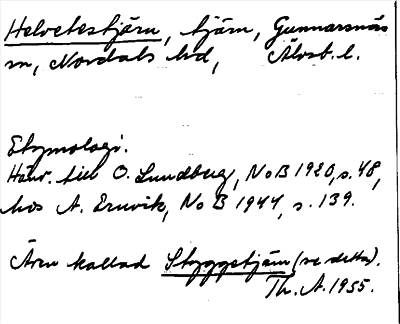 Helvetestjärn, tjärn, Gunnarsnäs
sn, Nordals hd, Älvsb. l.
Etymologi.
Hänv. till O. Lundberg, NoB 1920, s. 48,
hos A. Ernvik, NoB 1944, s. 139.
Även kallad Styggetjärn (se detta).
Th. A. 1955.